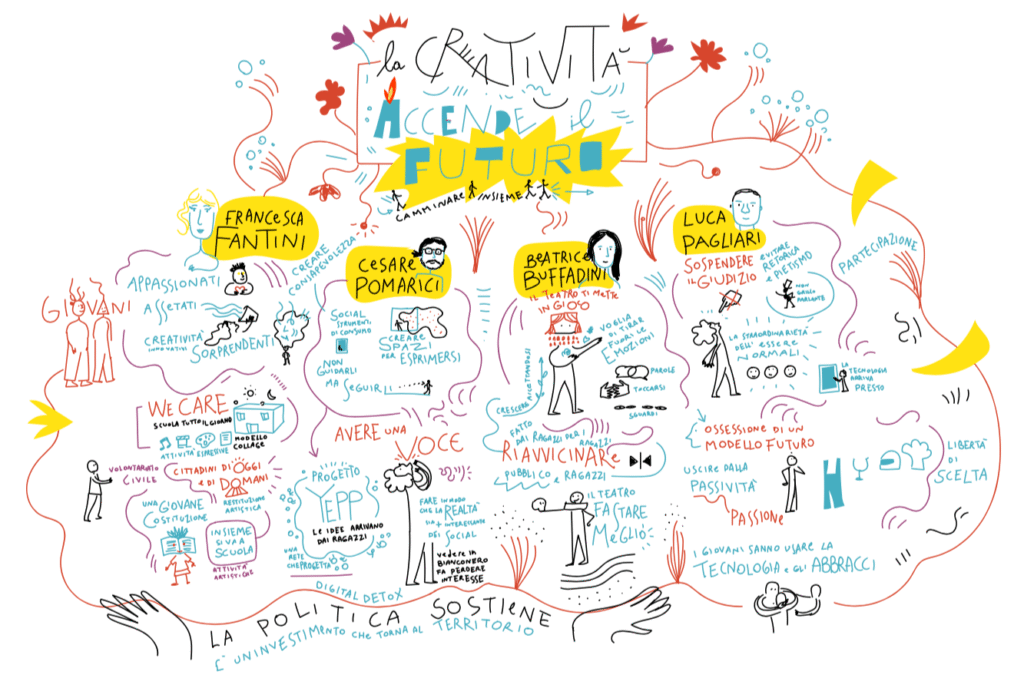 la CREATIVITÀ
ACCENDE il
FUTURO
CAMMINARE INSIEME
FRANCESCA
FANTINI
GIOVANI
APPASSIONATI
ASSETATI
CREATIVITÀ
INNOVATIVI
SORPRENDENTI
CREARE
CONSAPEVOLEZZA
WE CARE
SCUOLA TUTTO IL GIORNO
ATTIVITÀ ESPRESSIVE
MODELLO
COLLAGE
VOLONTARIATO
CIVILE
CITTADINI DI OGGI
E DI DOMANI
RESTITUZIONE
ARTISTICA
UNA GIOVANE
COSTITUZIONE
INSIEME
SI VA A
SCUOLA
ATTIVITÀ
ARTISTICHE
CESARE
POMARICI
SOCIAL
STRUMENTI
DI CONSUMO
NON
GUIDARLI
MA SEGUIRLI
CREARE
SPAZI
PER ESPRIMERSI
AVERE UNA
VOCE
PROGETTO
YEPP
LE IDEE ARRIVANO
DAI RAGAZZI
UNA
RETE
CHE PROGETTA
FARE IN MODO
CHE LA REALTÀ
SIA + INTERESSANTE
DEI SOCIAL
VEDERE IN
BIANCONERO
FA PERDERE
INTERESSE
DIGITAL DETOX
BEATRICE
BUFFADINI
IL TEATRO TI METTE
IN GIOCO
VOGLIA
DI TIRAR
FUORI LE
EMOZIONI
CRESCERE ACCETTANDOSI
PAROLE
TOCCARSI
SGUARDI
FATTO
DAI RAGAZZI PER I
RAGAZZI
RIAVVICINARE
PUBBLICO E RAGAZZI
IL TEATRO
FA STARE
MEGLIO
LUCA
PAGLIARI
SOSPENDERE
IL GIUDIZIO
EVITARE
RETORICA
E PIETISMO
NON
GRILLO
PARLANTE
LA STRAORDINARIETÀ
DELL'ESSERE
NORMALI
LA
TECNOLOGIA
ARRIVA
PRESTO
PARTECIPAZIONE
OSSESSIONE DI UN
MODELLO FUTURO
USCIRE DALLA
PASSIVITÀ
PASSIONE
LIBERTÀ
DI
SCELTA
I GIOVANI SANNO USARE LA
TECNOLOGIA E GLI ABBRACCI
LA POLITICA SOSTIENE
È UN INVESTIMENTO CHE TORNA AL TERRITORIO